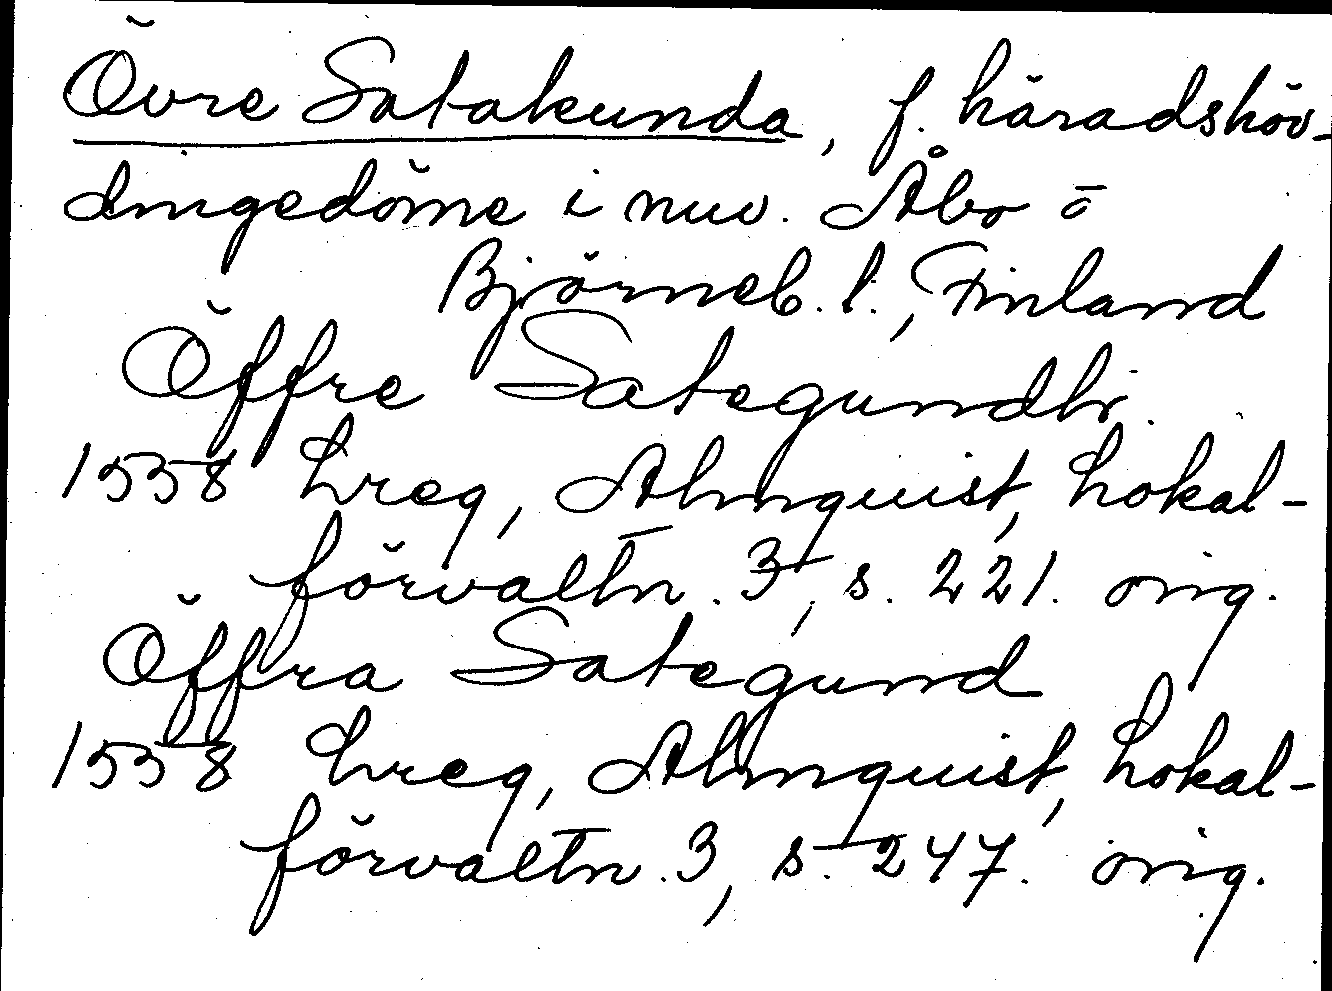 Övre Satakunda, f. häradshöv-
dingedöme i nuv. Åbo o
Björneb. l., Finland
Öffre Sategundh.
1558 Lreg, Almquist, Lokal-
förvaltn. 3, s. 221. orig.
Öffra Sategund
1558 Lreg, Almquist, Lokal-
förvaltn. 3, s. 247. orig.